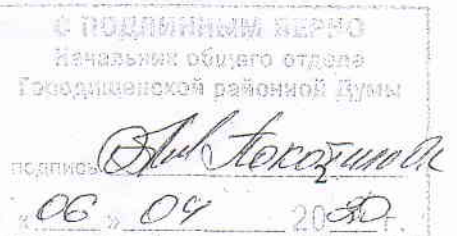 С ПОДЛИННЫМ ВЕРНО
Начальник общего отдела
Городищенской районной Думы
подпись
« 06 » 04 2020 г.